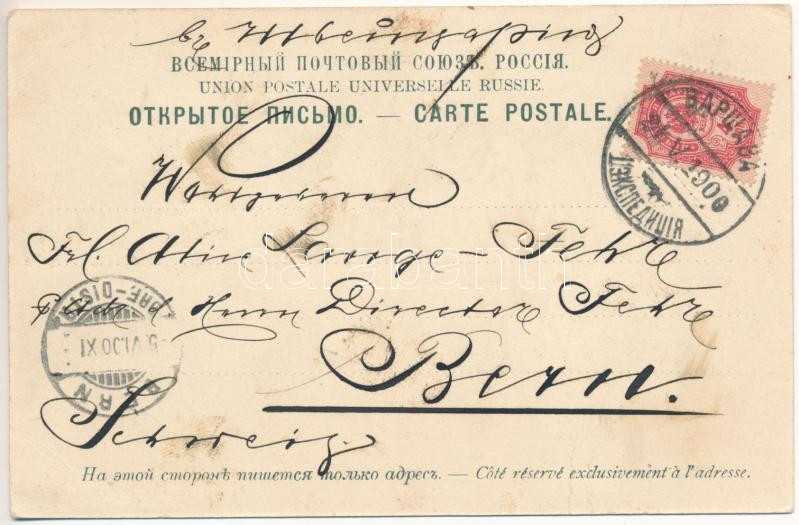 въ Швейцарію
ВСЕМІРНЫЙ ПОЧТОВЫЙ СОЮЗЪ. РОССІЯ.
UNION POSTALE UNIVERSELLE RUSSIE.
ОТКРЫТОЕ ПИСЬМО. — CARTE POSTALE.
ВАРШАВА
1900
ЭКСПЕДИЦІЯ
Wohlgeboren
Frl. Lange-Fehr
Herrn Director Fehr
BRF.-DIST
5.VI.00 XI
BERN
Bern.
Schweiz
На этой сторонѣ пишется только адресъ. — Côté réservé exclusivement à l'adresse.
darabanth